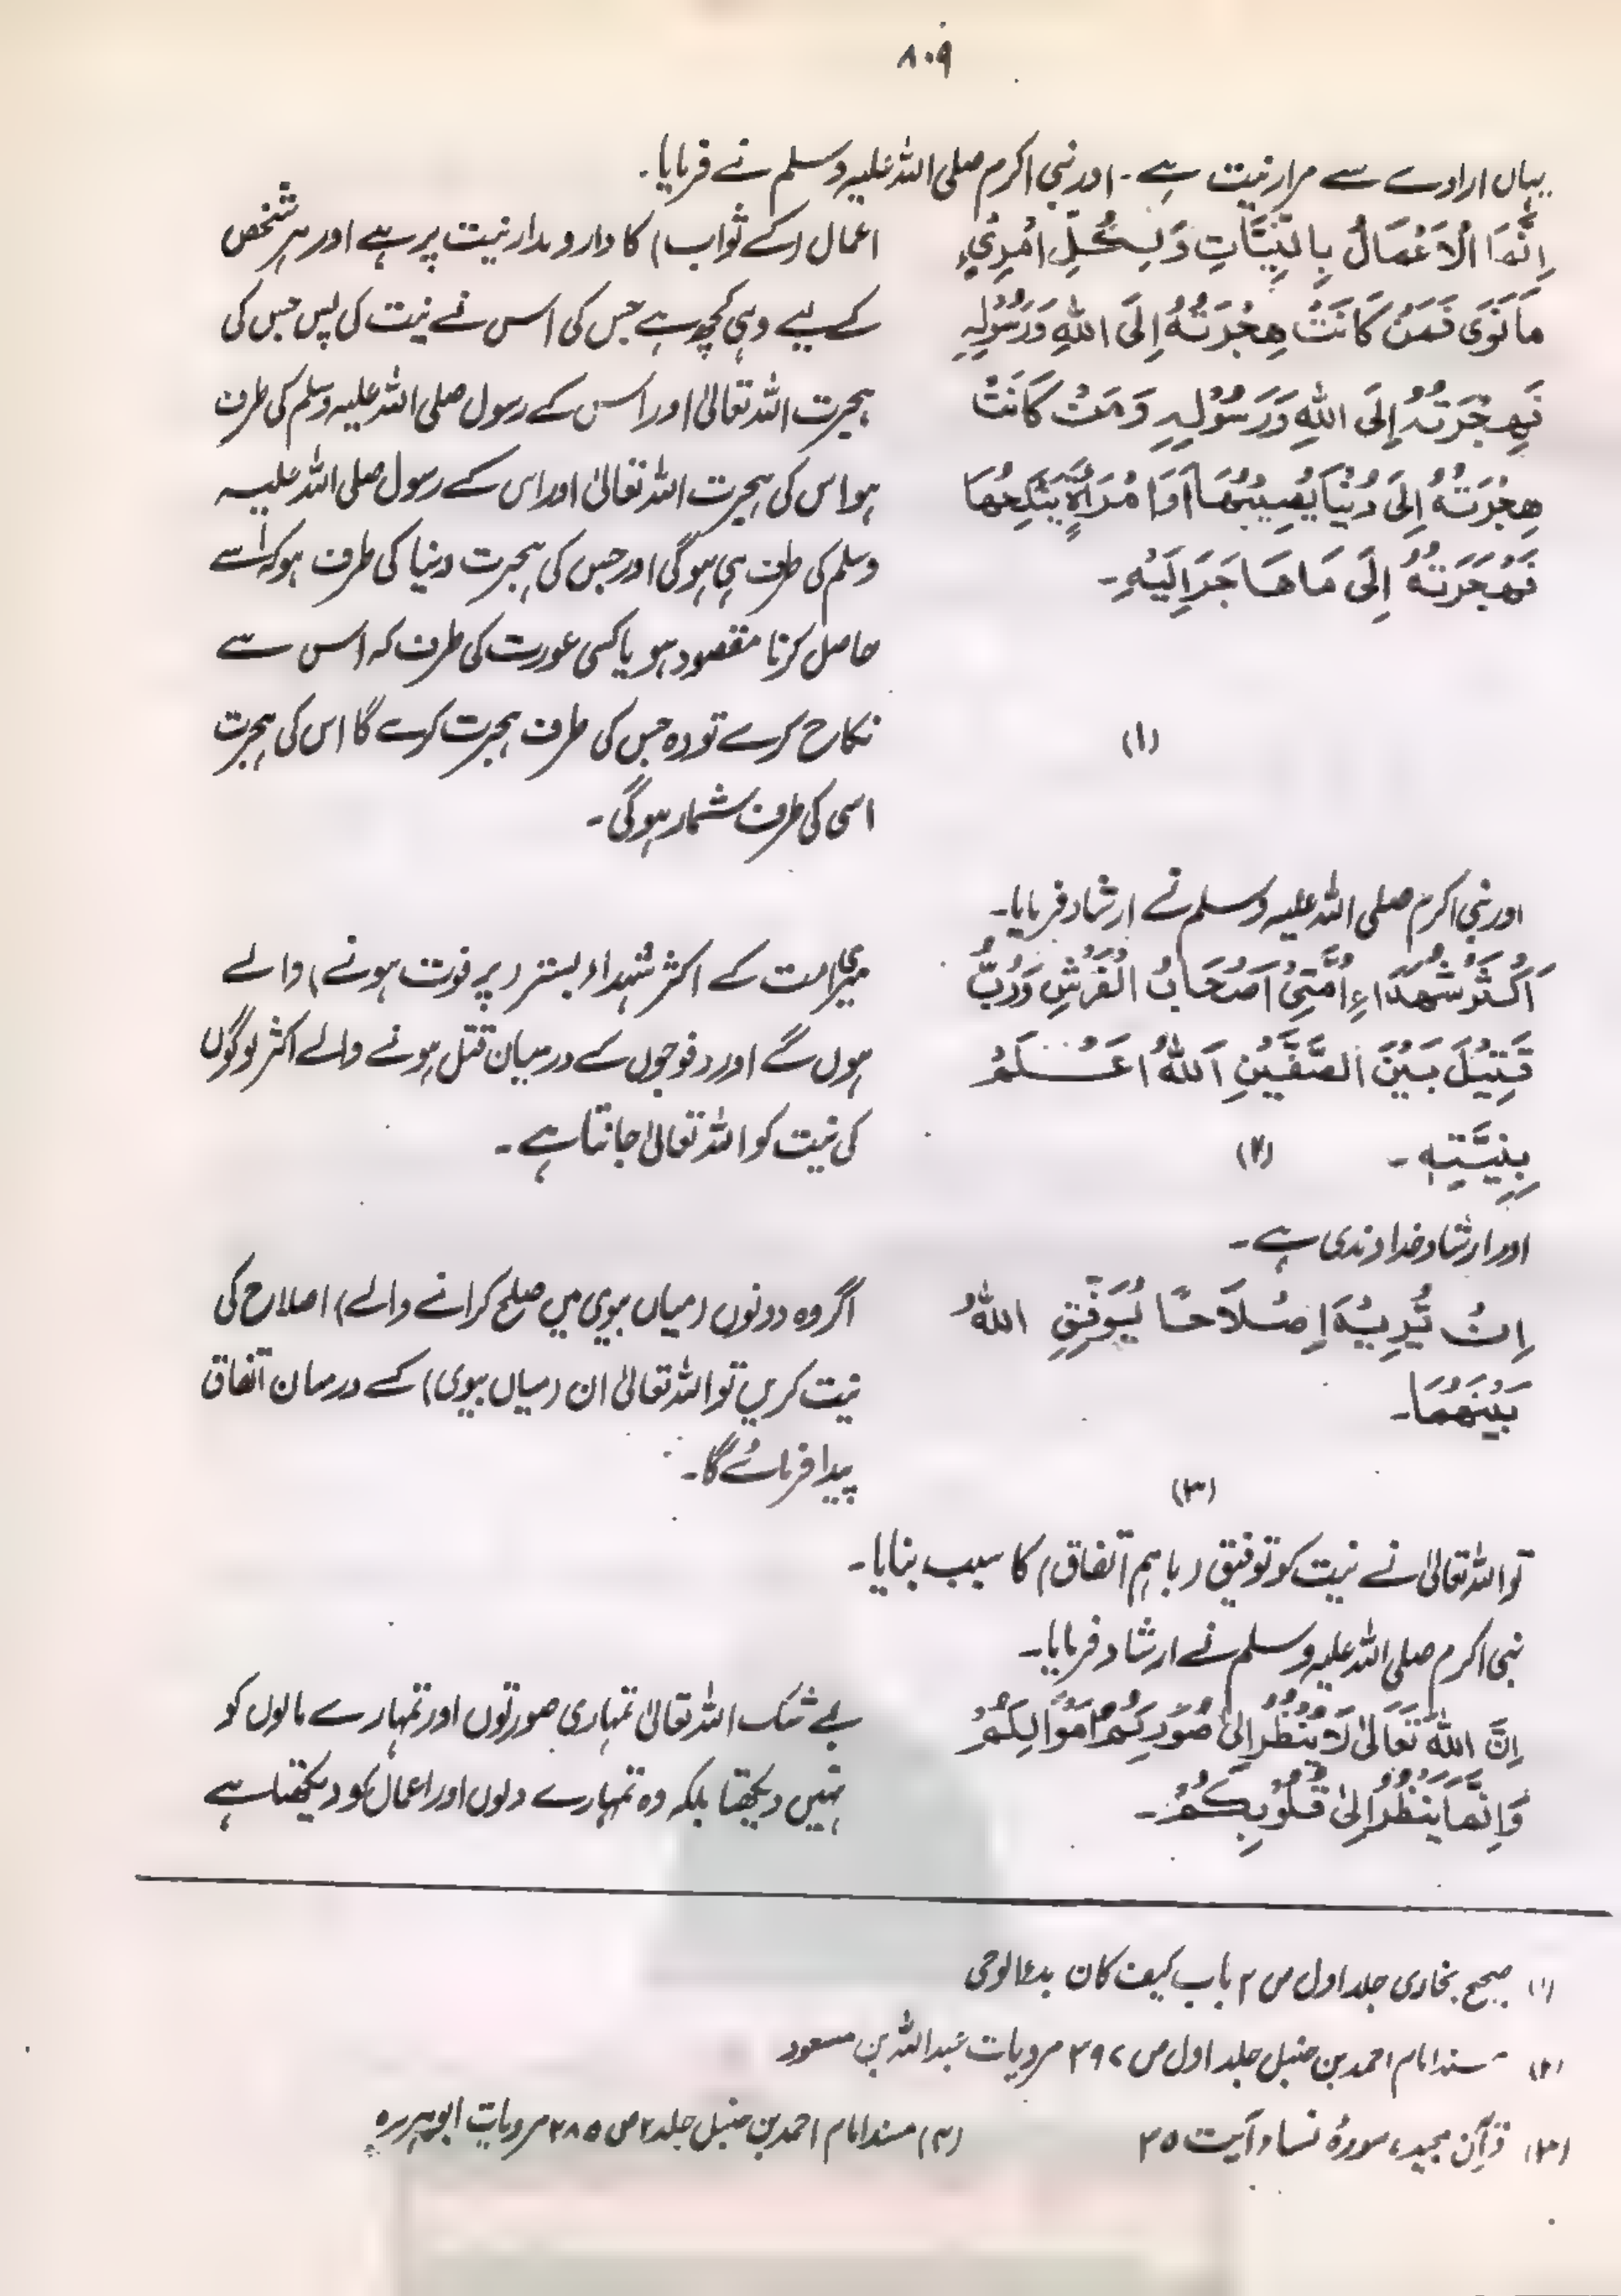 ۸۰۹
یہاں ارادے سے مراد نیت ہے۔ اور نبی اکرم صلی اللہ علیہ وسلم نے فرمایا۔
اِنَّمَا الْاَعْمَالُ بِالنِّیَّاتِ وَلِکُلِّ امْرِیٍٔ
مَانَوٰی فَمَنْ کَانَتْ هِجْرَتُهٗ اِلَی اللّٰهِ وَرَسُوْلِهٖ
فَهِجْرَتُهٗ اِلَی اللّٰهِ وَرَسُوْلِهٖ وَمَنْ کَانَتْ
هِجْرَتُهٗ اِلٰی دُنْیَا یُصِیْبُهَا اَوِامْرَاَةٍ یَنْکِحُهَا
فَهِجْرَتُهٗ اِلٰی مَا هَاجَرَ اِلَیْهِ۔
(۱)
اعمال (کے ثواب) کا دارو مدار نیت پر ہے اور ہر شخص
کے لیے وہی کچھ ہے جس کی اس نے نیت کی پس جس کی
ہجرت اللہ تعالیٰ اور اس کے رسول صلی اللہ علیہ وسلم کی طرف
ہو اس کی ہجرت اللہ تعالیٰ اور اس کے رسول صلی اللہ علیہ
وسلم کی طرف ہی ہو گی اور جس کی ہجرت دنیا کی طرف ہو کہ اسے
حاصل کرنا مقصود ہو یا کسی عورت کی طرف کہ اس سے
نکاح کرے تو وہ جس کی طرف ہجرت کرے گا اس کی ہجرت
اسی کی طرف شمار ہو گی۔
اور نبی اکرم صلی اللہ علیہ وسلم نے ارشاد فرمایا۔
اَکْثَرُ شُهَدَاءِ اُمَّتِیْ اَصْحَابُ الْفُرُشِ وَرُبَّ
قَتِیْلٍ بَیْنَ الصَّفَّیْنِ اَللّٰهُ اَعْلَمُ
بِنِیَّتِهٖ۔ (۲)
میری امت کے اکثر شہداء بستر (پر فوت ہونے) والے
ہوں گے اور دو فوجوں کے درمیان قتل ہونے والے اکثر لوگوں
کی نیت کو اللہ تعالیٰ جانتا ہے۔
اور ارشاد خداوندی ہے۔
اِنْ یُّرِیْدَا اِصْلَاحًا یُّوَفِّقِ اللّٰهُ
بَیْنَهُمَا۔
(۳)
اگر وہ دونوں (میاں بیوی میں صلح کرانے والے) اصلاح کی
نیت کریں تو اللہ تعالیٰ ان (میاں بیوی) کے درمیان اتفاق
پیدا فرمائے گا۔
تو اللہ تعالیٰ نے نیت کو توفیق (باہم اتفاق) کا سبب بنایا۔
نبی اکرم صلی اللہ علیہ وسلم نے ارشاد فرمایا۔
اِنَّ اللّٰهَ تَعَالٰی لَا یَنْظُرُ اِلٰی صُوَرِکُمْ اَمْوَالِکُمْ
وَاِنَّمَا یَنْظُرُ اِلٰی قُلُوْبِکُمْ۔
بے شک اللہ تعالیٰ تمہاری صورتوں اور تمہارے مالوں کو
نہیں دیکھتا بلکہ وہ تمہارے دلوں اور اعمال کو دیکھتا ہے
(۱) صحیح بخاری جلد اول ص ۲ باب کیف کان بدء الوحی
(۲) مسند امام احمد بن حنبل جلد اول ص ۳۹۷ مرویات عبداللہ بن مسعود
(۳) قرآن مجید، سورۂ نساء آیت ۳۵ (۴) مسند امام احمد بن حنبل جلد ۲ ص ۲۸۵ مرویات ابو ہریرہ